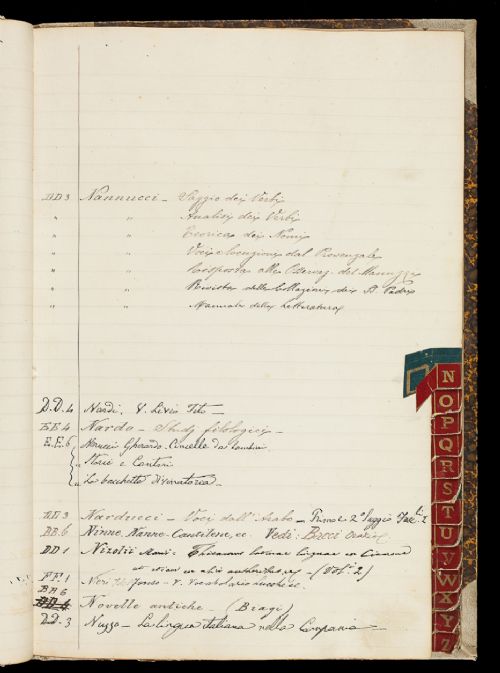 DD 3 Nannucci - Saggio dei Verbi
" " Analisi dei Verbi
" " Teorica dei Nomi
" " Voci e locuzioni dal Provenzale
" " Risposta alle Osservaz. del Manuzzi
" " Rivista delle Collazioni dei SS Padri
" " Manuale della Letteratura
D.D. 4 Nardi, V. Livio Tito -
EE 4 Nardo - Studj filologici -
E.E. 6 Nerucci Gherardo. Cincelle da bambini
" Storie e Cantari
" La bacchetta Divinatoria -
DD 3 Narducci - Voci dall'Arabo - Primo e 2° Saggio
BB. 6 Ninne, Nanne, Cantilene, ec. Vedi: Bacci Orazio
DD 1 Nizolii Thesaurus linguae
(Vol. 2)
FF. 1 Neri V. Vocabolario Lucchese
BB 6
Novelle antiche - (Biagi)
D.D. 3 Nuzzo - La lingua italiana nella Campania -
N
O
P
Q
R
S
T
U
V
W
X
Y
Z